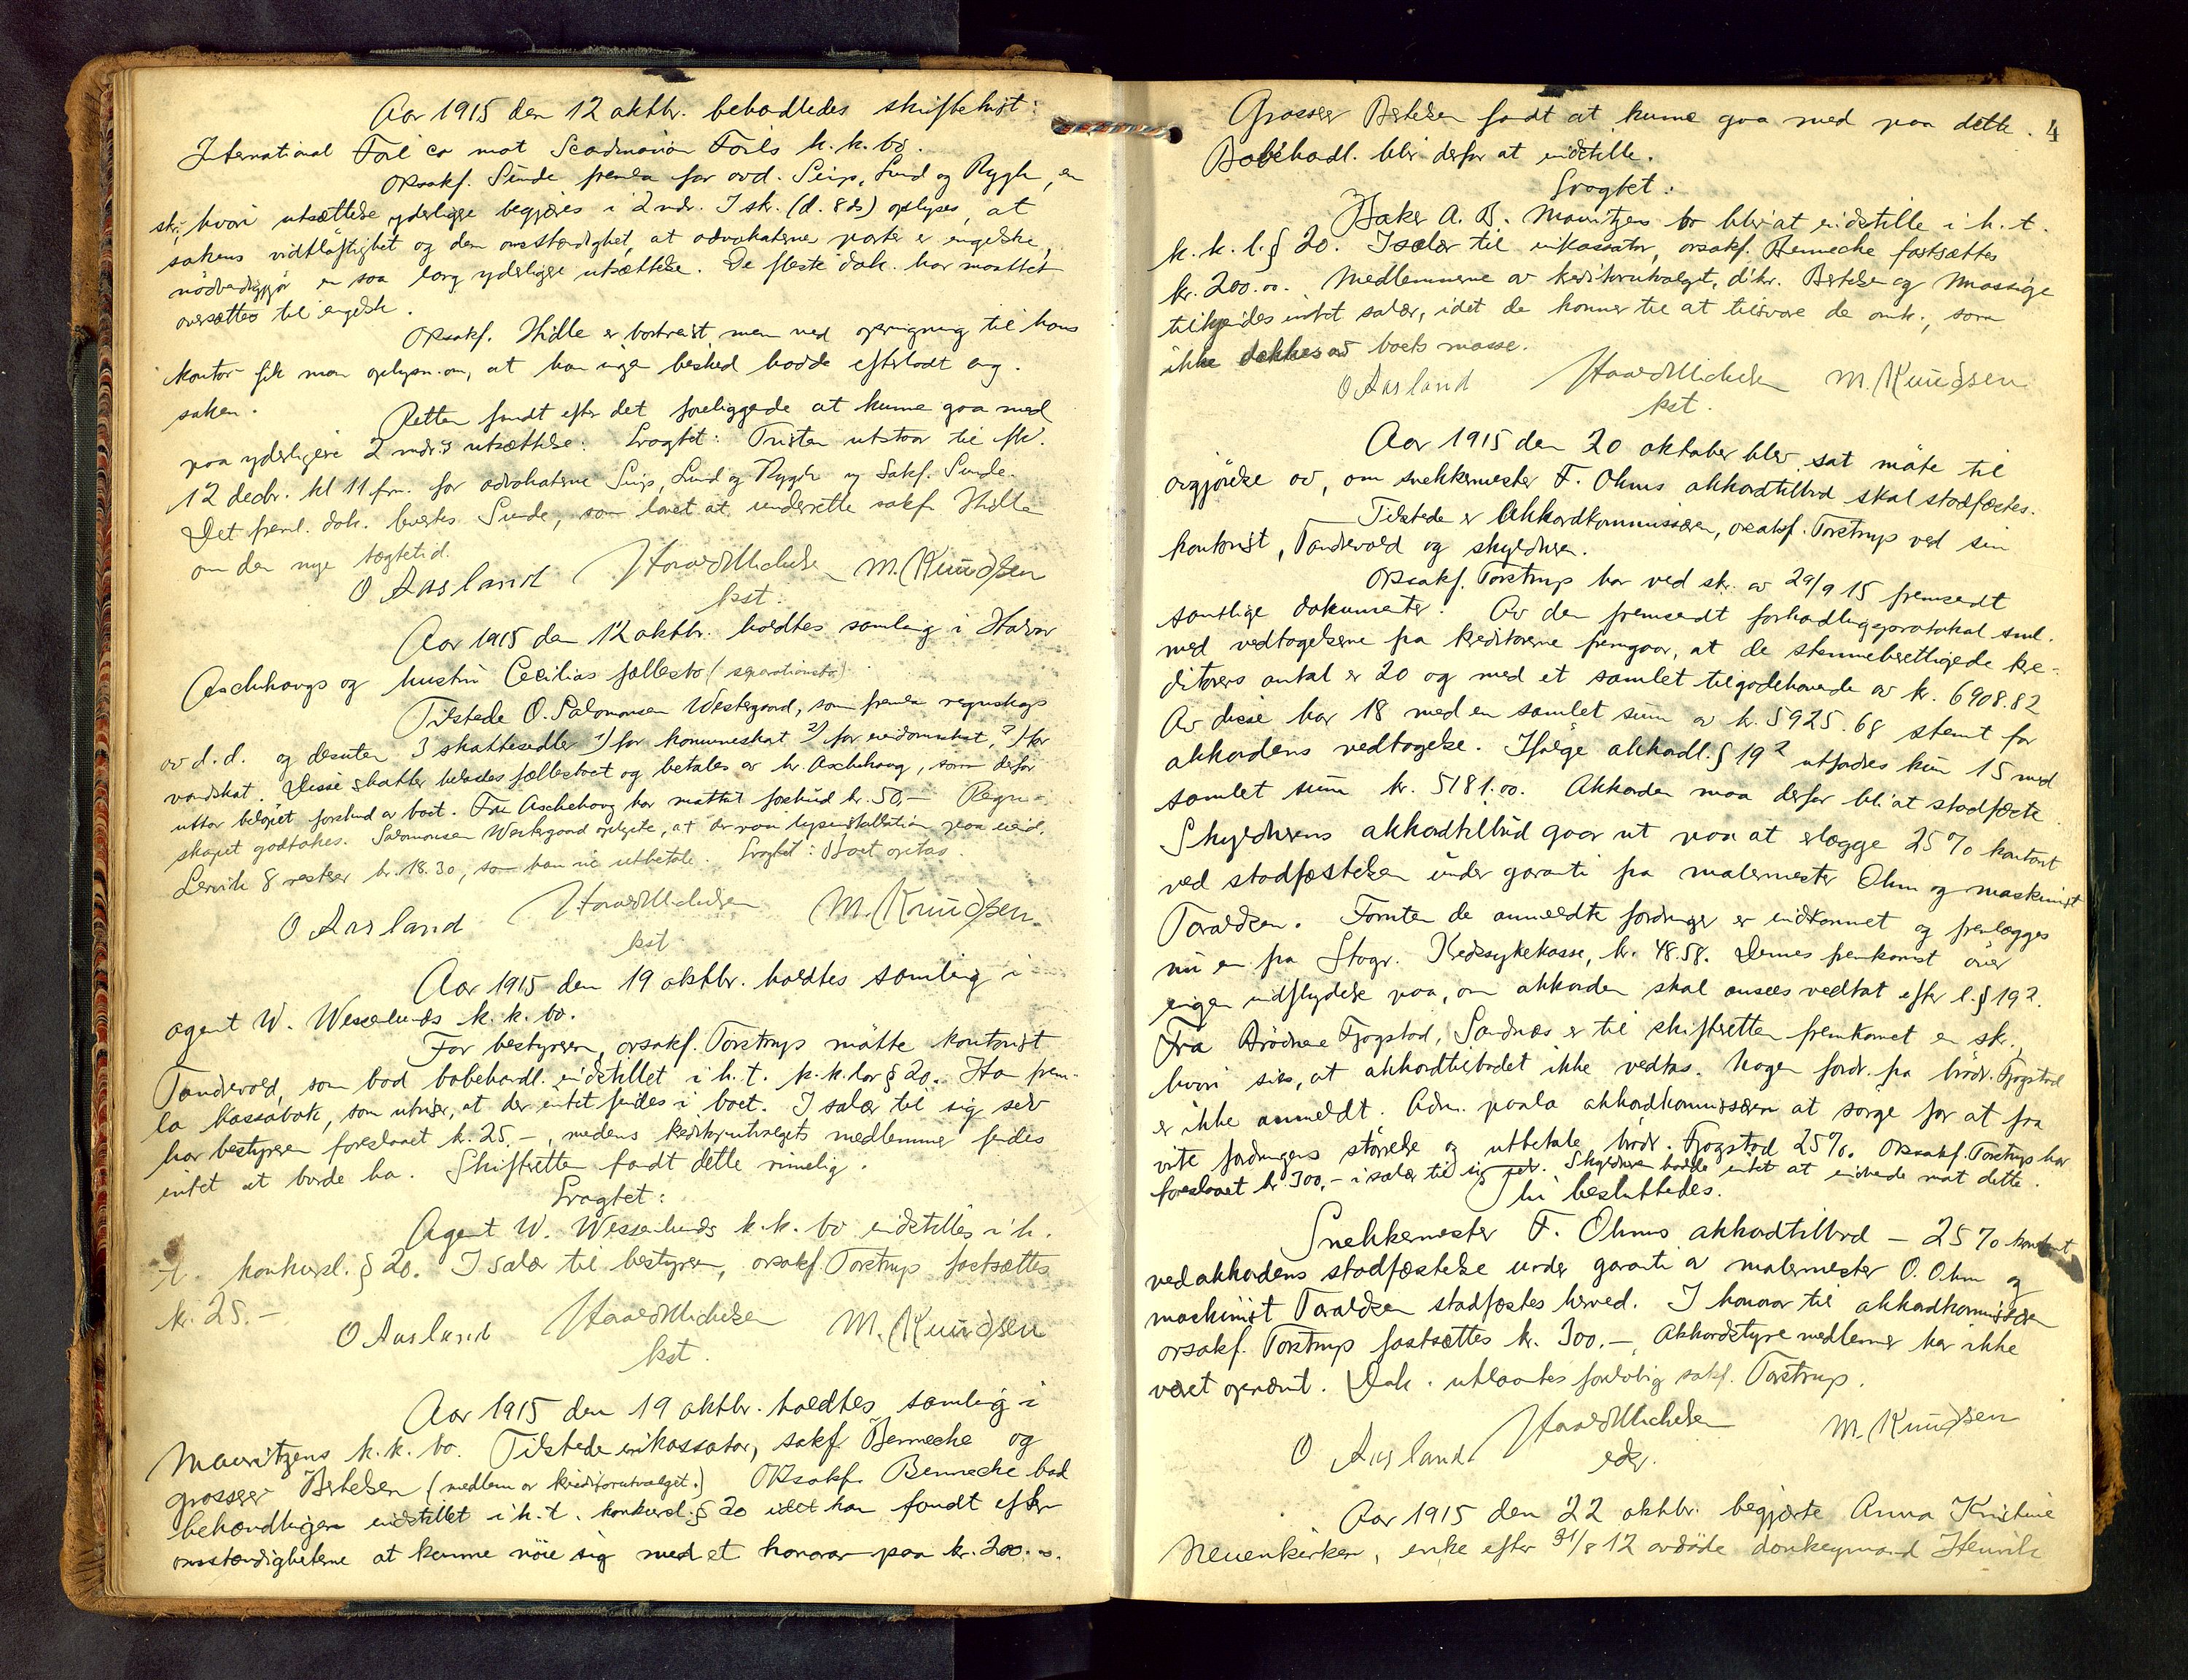 Aar 1915 den 12 oktbr. behandledes skiftetvist:
International Foil co mot Scandinavian Foils k. k. bo.
Orsakf. Sunde fremla for adv. Seip, Lund og Rygh, en
skr., hvori utsættelse yderligere begjæres i 2 mdr. I skr. (d. 8ds) oplyses, at
sakens vidtløftighet og den omstændighet, at advokaterne parter er engelske,
nødvendiggjør en saa lang yderligere utsættelse. De fleste dok. har maattet
oversættes til engelsk.
Orsakf. Hidle er bortreist, men ved opringning til hans
kontor fik man oplysn. om, at han ingen besked hadde efterlatt ang.
saken.
Retten fandt efter det foreliggende at kunne gaa med
paa yderligere 2 mdr.s utsættelse: Eragtet: Fristen utstaar til
12 decbr. kl 11 fm. for advokaterne Seip, Lund og Rygh og Sakf. Sunde.
Det freml. dok. leveres Sunde, som lovet at underrette sakf. Hidle
om den nye tægtetid.
O Aasland Haavd Michelsen M. Knudsen
kst.
Aar 1915 den 12 oktbr. holdtes samling i Halvor
Aschehougs og hustru Cecilias fællesbo (separationsbo)
Tilstede O. Salomonsen Westergaard, som fremla regnskap
av d.d. og desuten 3 skattesedler 1) for kommuneskat 2) for eiendomsskat, 3) for
vandskat. Disse skatter belastes fællesboet og betales av hr. Aschehoug, som derfor
utfaar beløpet forskud av boet. Fru Aschehoug har mottat forskud kr. 50,- Regn-
skapet godtakes. Salomonsen Westergaard oplyste, at der paa lysinstallation paa eiend.
Lervik 8 resterer kr. 18.30, som han vil utbetale. Eragtet: Boet optas.
O Aasland Haavd Michelsen M. Knudsen
kst
Aar 1915 den 19 oktbr. holdtes samling i
agent W. Wesenlunds k. k. bo.
For bestyreren, orsakf. Torstrup møtte kontorist
Tandevold, som bad bobehandl. indstillet i h. t. k. k. lov § 20. Han frem-
la kassabok, som utviser, at der intet findes i boet. I salær til sig selv
har bestyreren foreslaaet kr. 25.-, medens kreditorutvalgets medlemmer findes
intet at burde ha. Skifteretten fandt dette rimelig.
Eragtet:
Agent W. Wessenlunds k. k. bo indstilles i h.
t. konkursl. § 20. I salær til bestyreren, orsakf Torstrup fastsættes
kr. 25.-
O Aasland Haavd Michelsen M. Knudsen
kst.
Aar 1915 den 19 oktbr. holdtes samling i
Mauritzens k. k. bo. Tilstede inkassator, sakf. Bennecke og
grosserer Bertelsen (medlem av kreditorutvalget.) Orsakf. Bennecke bad
behandlingen indstillet i h. t. konkursl. § 20 idet han fandt efter
omstændigheterne at kunne nøie sig med et honorar paa kr. 200.00.
4
Grosserer Bertelsen fandt at kunne gaa med paa dette.
Bobehandl. blir derfor at indstille.
Eragtet:
Baker A. B. Mauritzens bo blir at indstille i h. t.
k. k. l. § 20. I salær til inkassator, orsakf. Bennecke fastsættes
kr. 200.00. Medlemmerne av kreditorutvalget, d'hr. Bertelsen og Mossige
tilkjendes intet salær, idet de kommer til at tilsvare de omk., som
ikke dækkes av boets masse.
O Aasland Haavd Michelsen M. Knudsen
kst.
Aar 1915 den 20 oktober blev sat møte til
avgjørelse av, om snekkermester F. Ohms akkordtilbud skal stadfæstes.
Tilstede er Akkordkommissæren, orsakf. Torstrup ved sin
kontorist, Tandevold og skyldneren.
Orsakf. Torstrup har ved skr. av 29/9 15 fremsendt
samtlige dokumenter. Av den fremsendt forhandlingsprotokol sml.
med vedtagelserne fra kreditorerne fremgaar, at de stemmeberettigede kre-
ditorers antal er 20 og med et samlet tilgodehavende av kr. 6908.82
Av disse har 18 med en samlet sum av kr. 5925.68 stemt for
akkordens vedtagelse. Ifølge akkordl. § 19 2 utfordres kun 15 med
samlet sum kr. 5181.00. Akkorden maa derfor bli at stadfæste.
Skyldnerens akkordtilbud gaar ut paa at erlægge 25 % kontant
ved stadfæstelsen under garanti fra malermester Ohm og maskinist
Taraldsen. Foruten de anmeldte fordringer er indkommet og fremlægges
nu en fra Stagr. Kredssykekasse, kr. 48.58. Dennes fremkomst øver
ingen indflydelse paa, om akkorden skal ansees vedtat efter l. § 19 2.
Fra Brødrene Fjogstad, Sandnæs er til skifteretten fremkommet en skr.,
hvori sies, at akkordtilbudet ikke vedtas. Nogen fordr. fra brødr. Fjogstad
er ikke anmeldt. Adm. paala akkordkommissæren at sørge for at faa
vite fordringens størrelse og utbetale brødr. Fjogstad 25 %. Orsakf. Torstrup har
foreslaaet kr 300.- i salær til sig selv. Skyldneren hadde intet at indvende mot dette.
Thi besluttedes.
Snekkermester F. Ohms akkordtilbud - 25 % kontant
ved akkordens stadfæstelse under garanti av malermester O. Ohm og
maskinist Taraldsen stadfæstes herved. I honorar til akkordkommissæren
orsakf. Torstrup fastsættes kr. 300.-, Akkordstyremedlemmer har ikke
været opnævnt. Dok. utlaantes foreløbig sakf. Torstrup.
O Aasland Haavd Michelsen M. Knudsen
edsv.
Aar 1915 den 22 oktbr. begjærte Anna Kristine
Neuenkirken, enke efter 31/8 12 avdøde donkeymand Henrik